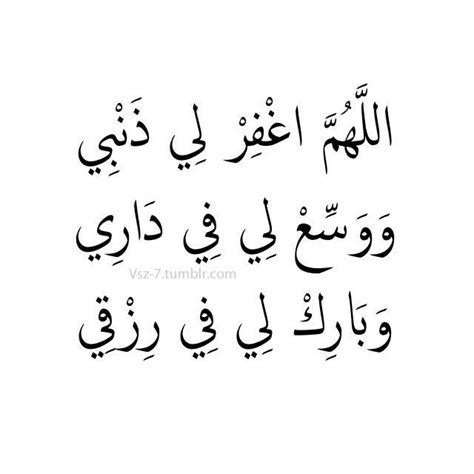 اللَّهُمَّ اغْفِرْ لِي ذَنْبِي
وَوَسِّعْ لِي فِي دَارِي
Vsz-7.tumblr.com
وَبَارِكْ لِي فِي رِزْقِي